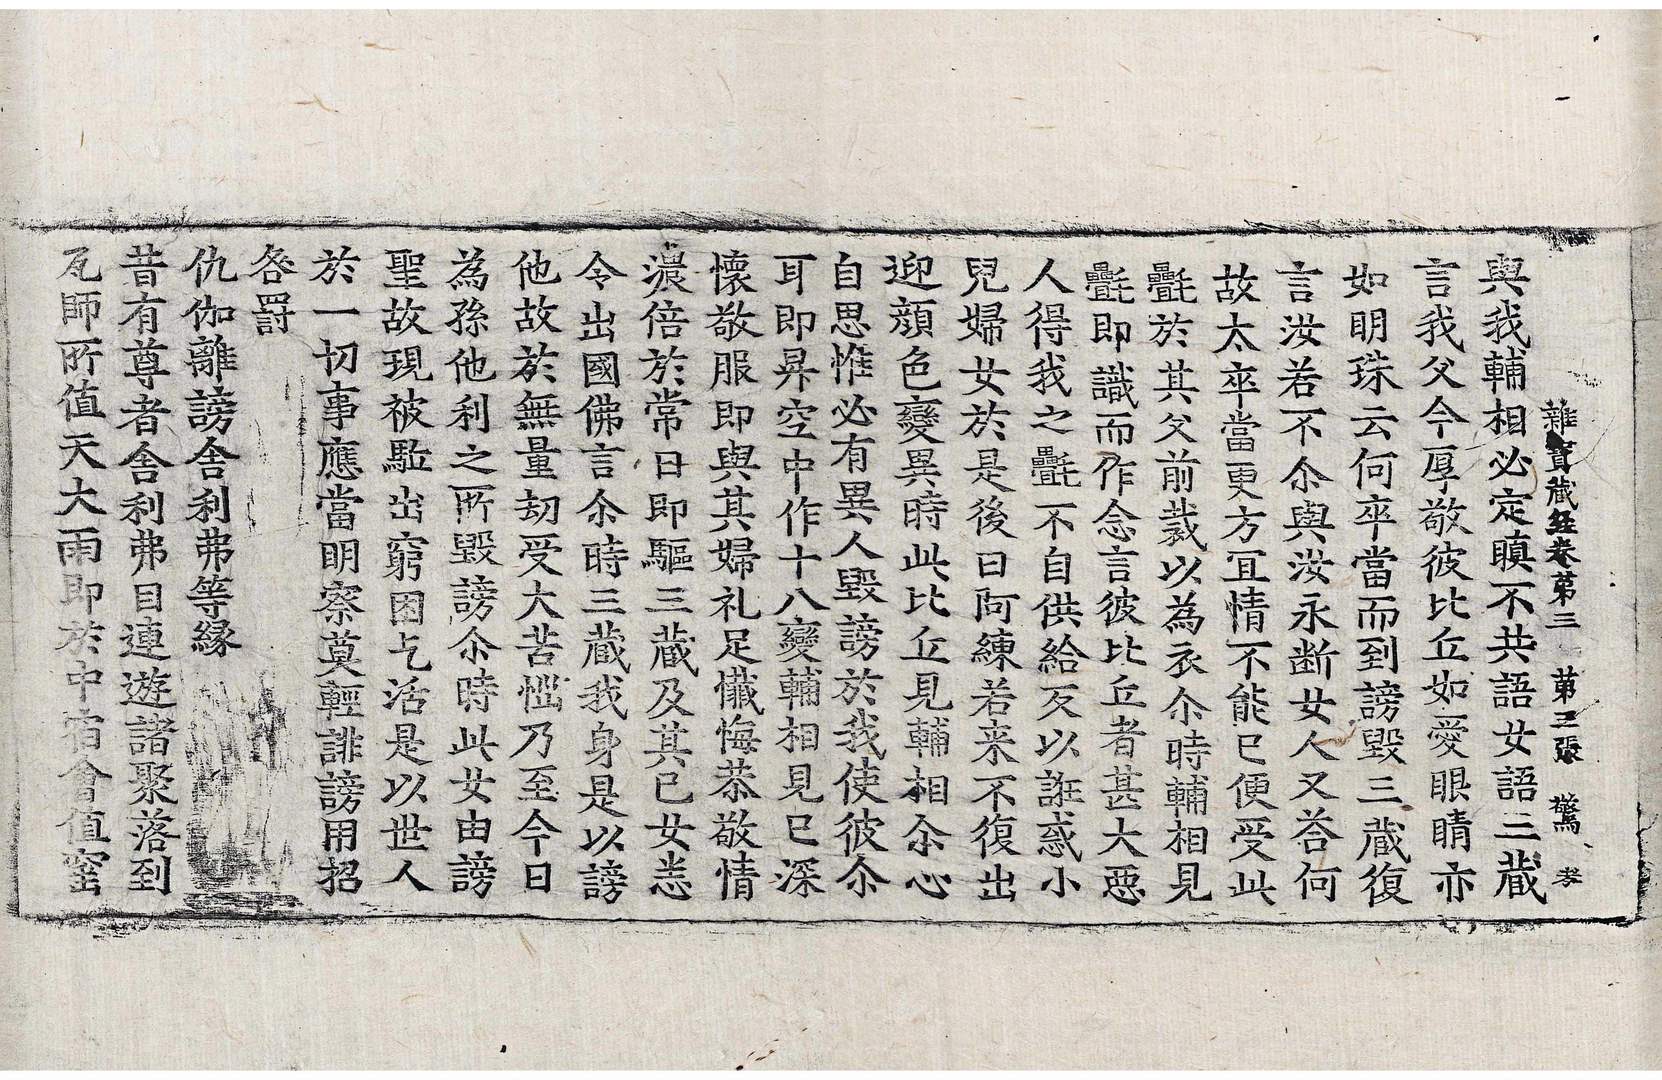 雜寶藏經卷第三 第三張 驚
與我輔相必定瞋不共語女語三藏
言我父今厚敬彼比丘如愛眼睛亦
如明珠云何卒當而到謗毀三藏復
言汝若不尒與汝永断女人又荅何
故太卒當更方冝情不能已便受此
㲲於其父前裁以為衣尒時輔相見
㲲即識而作念言彼比丘者甚大惡
人得我之㲲不自供給反以誑惑小
兒婦女於是後日阿練若来不復出
迎顔色變異時此比丘見輔相尒心
自思惟必有異人毀謗於我使彼尒
耳即昇空中作十八變輔相見已深
懷敬服即與其婦礼足懺悔恭敬情
濃倍於常日即驅三藏及其已女恚
令出國佛言尒時三藏我身是以謗
他故於無量劫受大苦惱乃至今日
為孫他利之所毀謗尒時此女由謗
聖故現被駈出窮困乞活是以世人
於一切事應當明察莫輕誹謗用招
咎罰
仇伽離謗舍利弗等縁
昔有尊者舍利弗目連遊諸聚落到
瓦師所值天大雨即於中宿會值窑